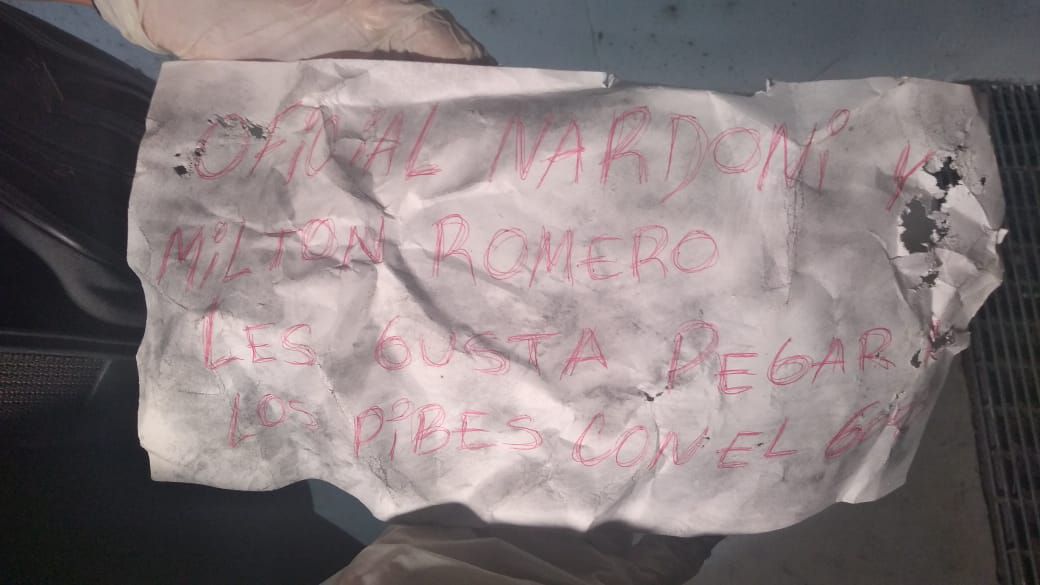 OFiCiAL NARDONi Y
MiLTON ROMERO
LES GUSTA PEGAR A
LOS PiBES CON EL